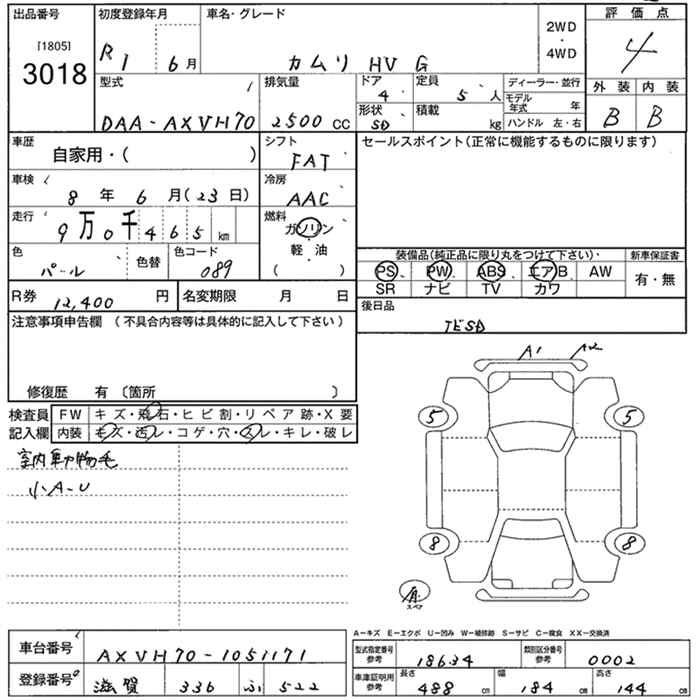 出品番号
[1805]
3018
初度登録年月
R1 6月
車名・グレード
カムリ HV G
2WD
・
4WD
評価点
4
外装 内装
B B
型式
DAA-AXVH70
排気量
2500 CC
ドア
4
定員
5 人
形状
SD
積載
kg
ディーラー・並行
モデル年式 年
ハンドル 左・右
車歴
自家用・( )
シフト
FAT
セールスポイント(正常に機能するものに限ります)
車検
8年 6月(23日)
冷房
AAC
走行
9万0千465km
燃料
ガソリン
軽・油
( )
色
パール
色替
色コード
089
装備品(純正品に限り丸をつけて下さい)・
新車保証書
PS PW ABS エアB AW
有・無
SR ナビ TV カワ
R券 12,400円
名変期限 月 日
後日品
注意事項申告欄 (不具合内容等は具体的に記入して下さい)
修復歴 有 〔箇所 〕
検査員
記入欄
FW キズ・飛石・ヒビ割・リペア跡・X要
内装 キズ・汚レ・コゲ・穴・スレ・キレ・破レ
室内動物毛
小A-U
A1 A2
5 5
8 8
スペア
A-キズ E-エクボ U-凹み W-補修跡 S-サビ C-腐食 XX-交換済
車台番号 AXVH70-1051171
登録番号 滋賀 336 ふ 522
型式指定番号
参考
18634
類別区分番号
参考
0002
車庫証明用
参考
長さ 488 cm
幅 184 cm
高さ 144 cm